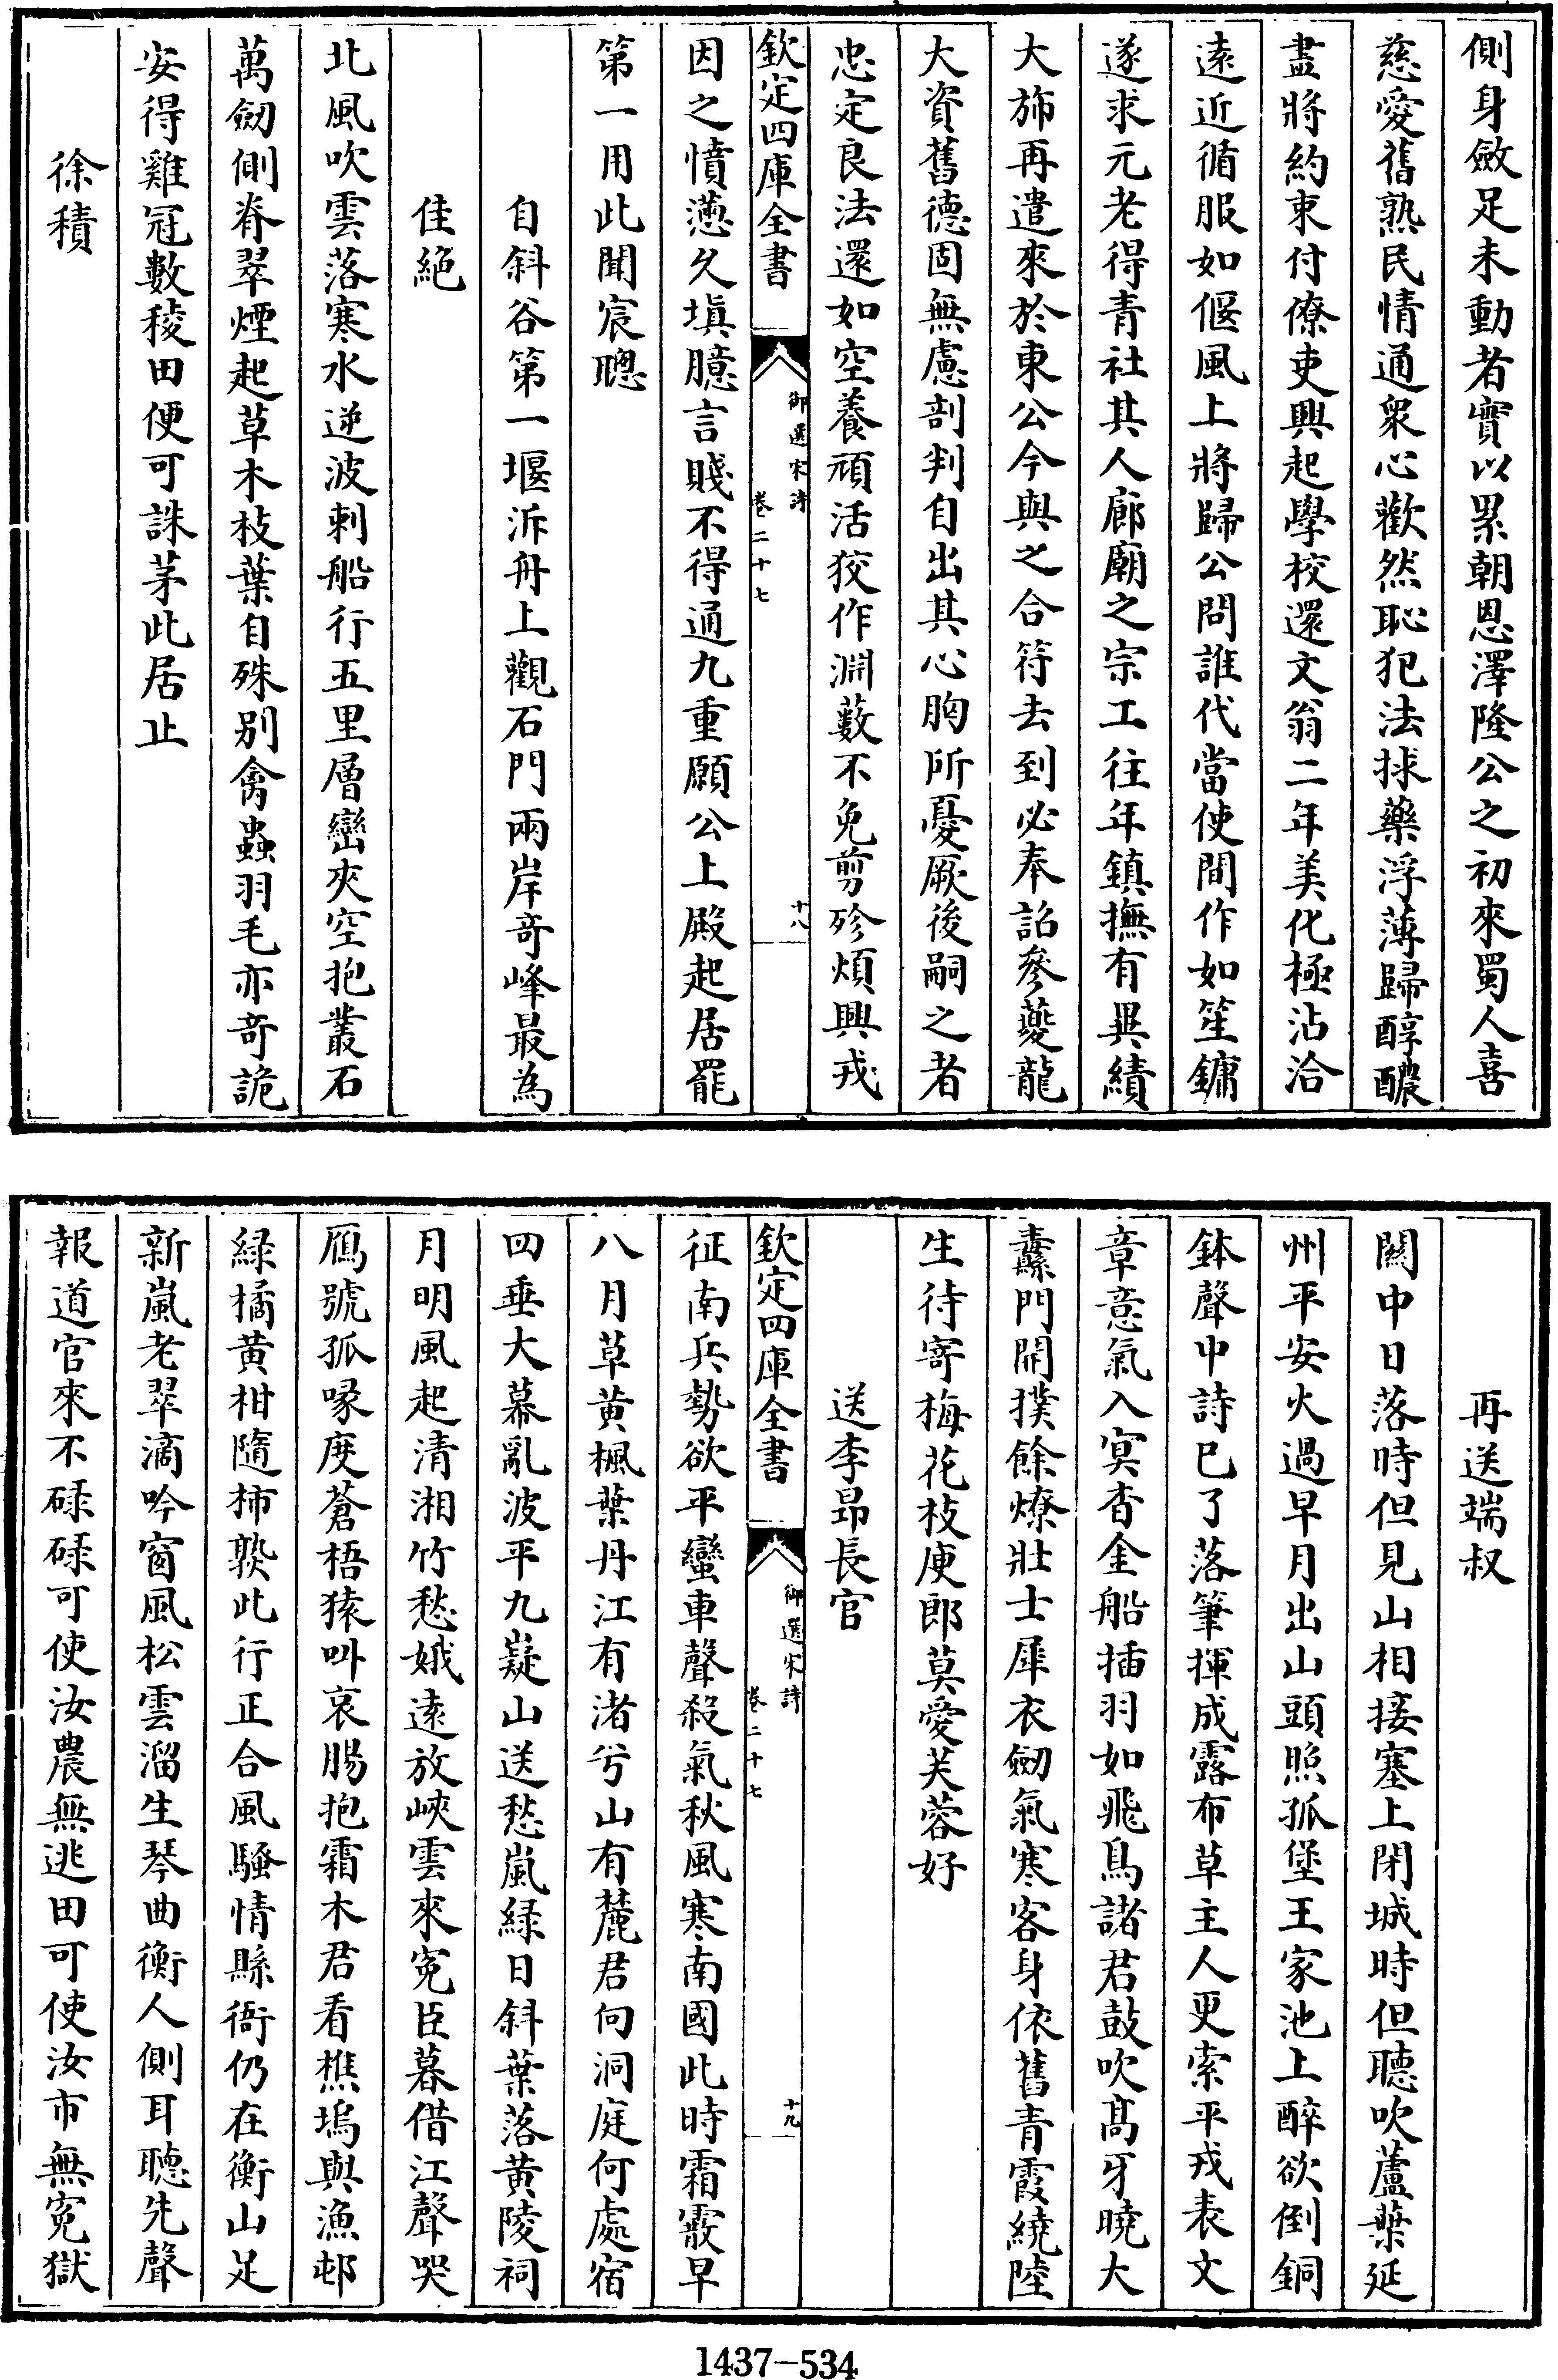 側身斂足未動者實以累朝恩澤隆公之初來蜀人喜
慈愛舊熟民情通衆心歡然恥犯法捄藥浮薄歸醇醲
盡將約束付僚吏興起學校還文翁二年美化極沾洽
遠近循服如偃風上將歸公問誰代當使間作如笙鏞
遂求元老得青社其人廊廟之宗工往年鎮撫有異績
大斾再遣來於東公今與之合符去到必奉詔參夔龍
大資舊德固無慮剖判自出其心胸所憂厥後嗣之者
忠定良法還如空養頑活狡作淵藪不免剪殄煩興戎
欽定四庫全書
御選宋詩
卷二十七
十八
因之憤懣久塡臆言賤不得通九重願公上殿起居罷
第一用此聞宸聰
自斜谷第一堰泝舟上觀石門兩岸奇峰最為
佳絶
北風吹雲落寒水逆波刺船行五里層巒夾空抱叢石
萬劒側脊翠煙起草木枝葉自殊别禽蟲羽毛亦奇詭
安得雞冠數稜田便可誅茅此居止
徐積
再送端叔
關中日落時但見山相接塞上閉城時但聽吹蘆葉延
州平安火過早月出山頭照孤堡王家池上醉欲倒銅
鉢聲中詩已了落筆揮成露布草主人更索平戎表文
章意氣入冥杳金船插羽如飛鳥諸君鼓吹髙牙曉大
纛門開撲餘燎壯士犀衣劒氣寒客身依舊青霞繞陸
生待寄梅花枝庾郎莫愛芙蓉好
送李昂長官
欽定四庫全書
御選宋詩
卷二十七
十九
征南兵勢欲平蠻車聲殺氣秋風寒南國此時霜霰早
八月草黄楓葉丹江有渚兮山有麓君向洞庭何處宿
四垂大幕亂波平九嶷山送愁嵐緑日斜葉落黄陵祠
月明風起清湘竹愁娥遠放峽雲來寃臣暮借江聲哭
鴈號孤喙度蒼梧猿叫哀腸抱霜木君看樵塢與漁邨
緑橘黄柑隨柿熟此行正合風騷情縣衙仍在衡山足
新嵐老翠滴吟窗風松雲溜生琴曲衡人側耳聽先聲
報道官來不碌碌可使汝農無逃田可使汝市無寃獄
1437-534